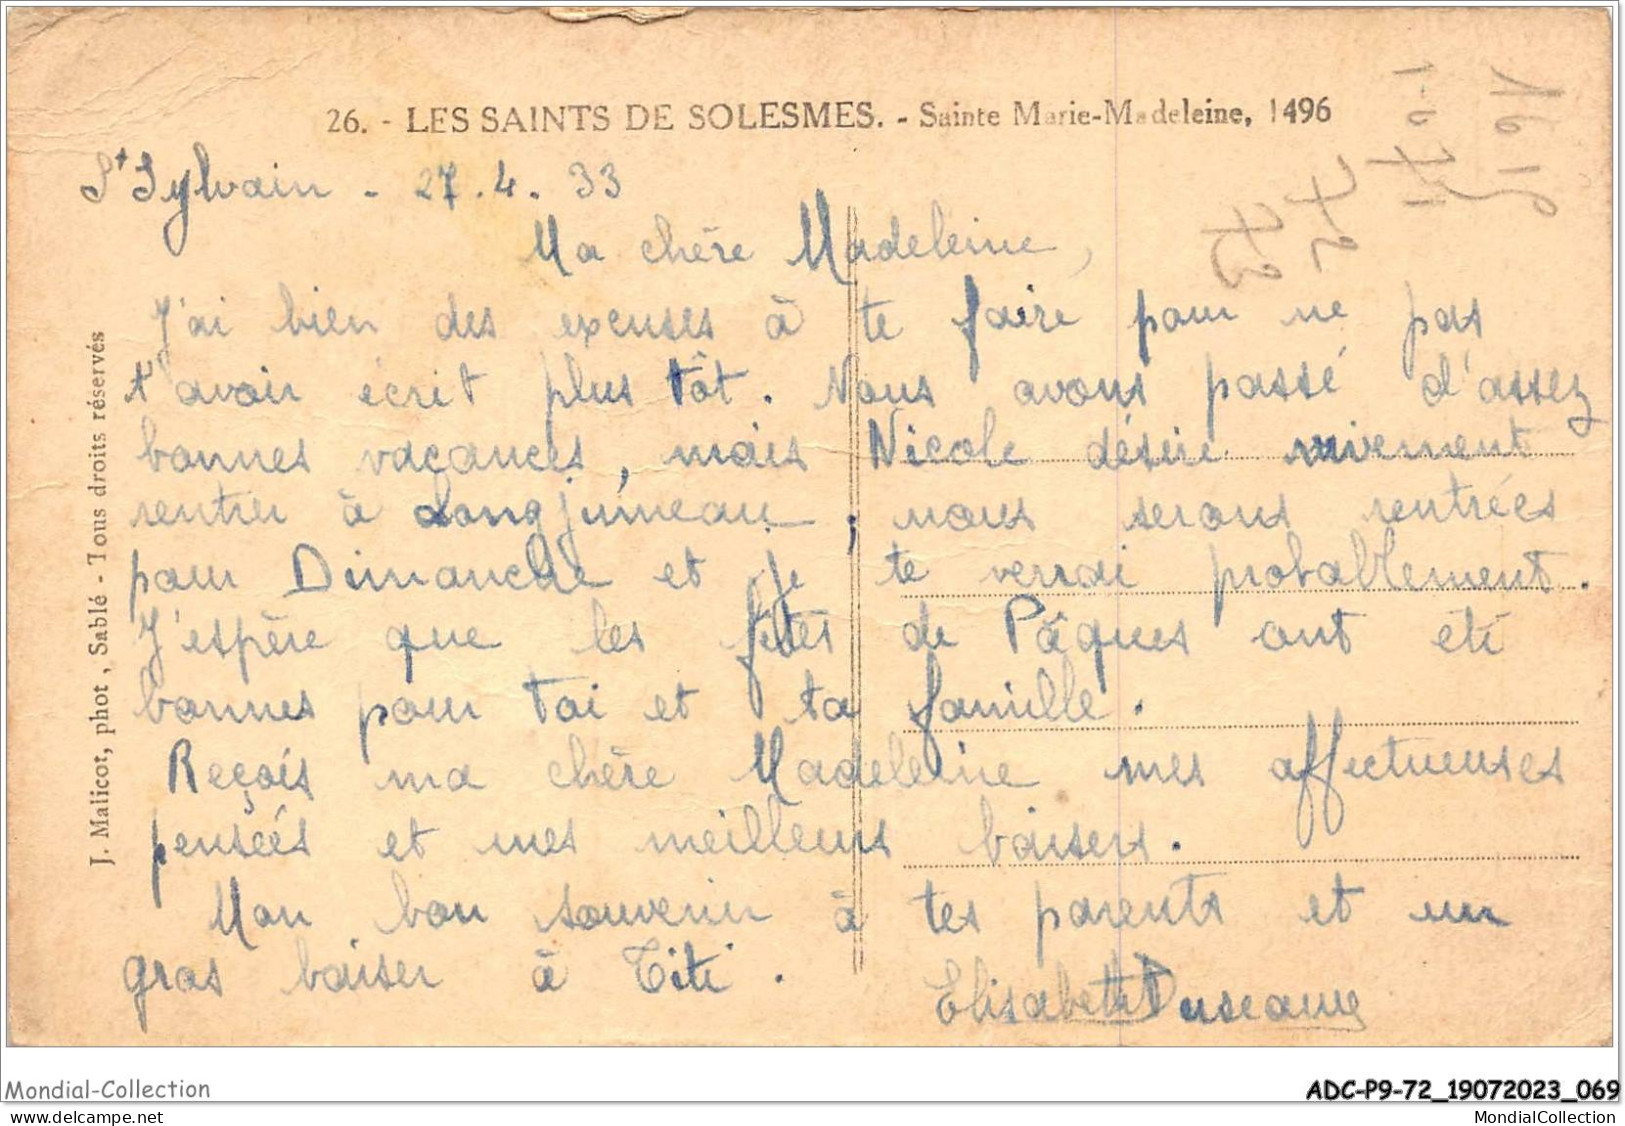 26. - LES SAINTS DE SOLESMES. - Sainte Marie-Madeleine, 1496
St Sylvain - 27.4.33
Ma chère Madeleine,
J'ai bien des excuses à te faire pour ne pas
t'avoir écrit plus tôt. Nous avons passé d'assez
bonnes vacances, mais Nicole désire vivement
rentrer à Longjumeau, nous serons rentrées
pour Dimanche et je te verrai probablement.
J'espère que les fêtes de Pâques ont été
bonnes pour toi et ta famille.
Reçois ma chère Madeleine mes affectueuses
pensées et mes meilleurs baisers.
Mon bon souvenir à tes parents et un
gros baiser à Titi.
Elisabeth
J. Malicot, phot, Sablé - Tous droits réservés
Mondial-Collection
ADC-P9-72_19072023_069
delcampe.net
MondialCollection